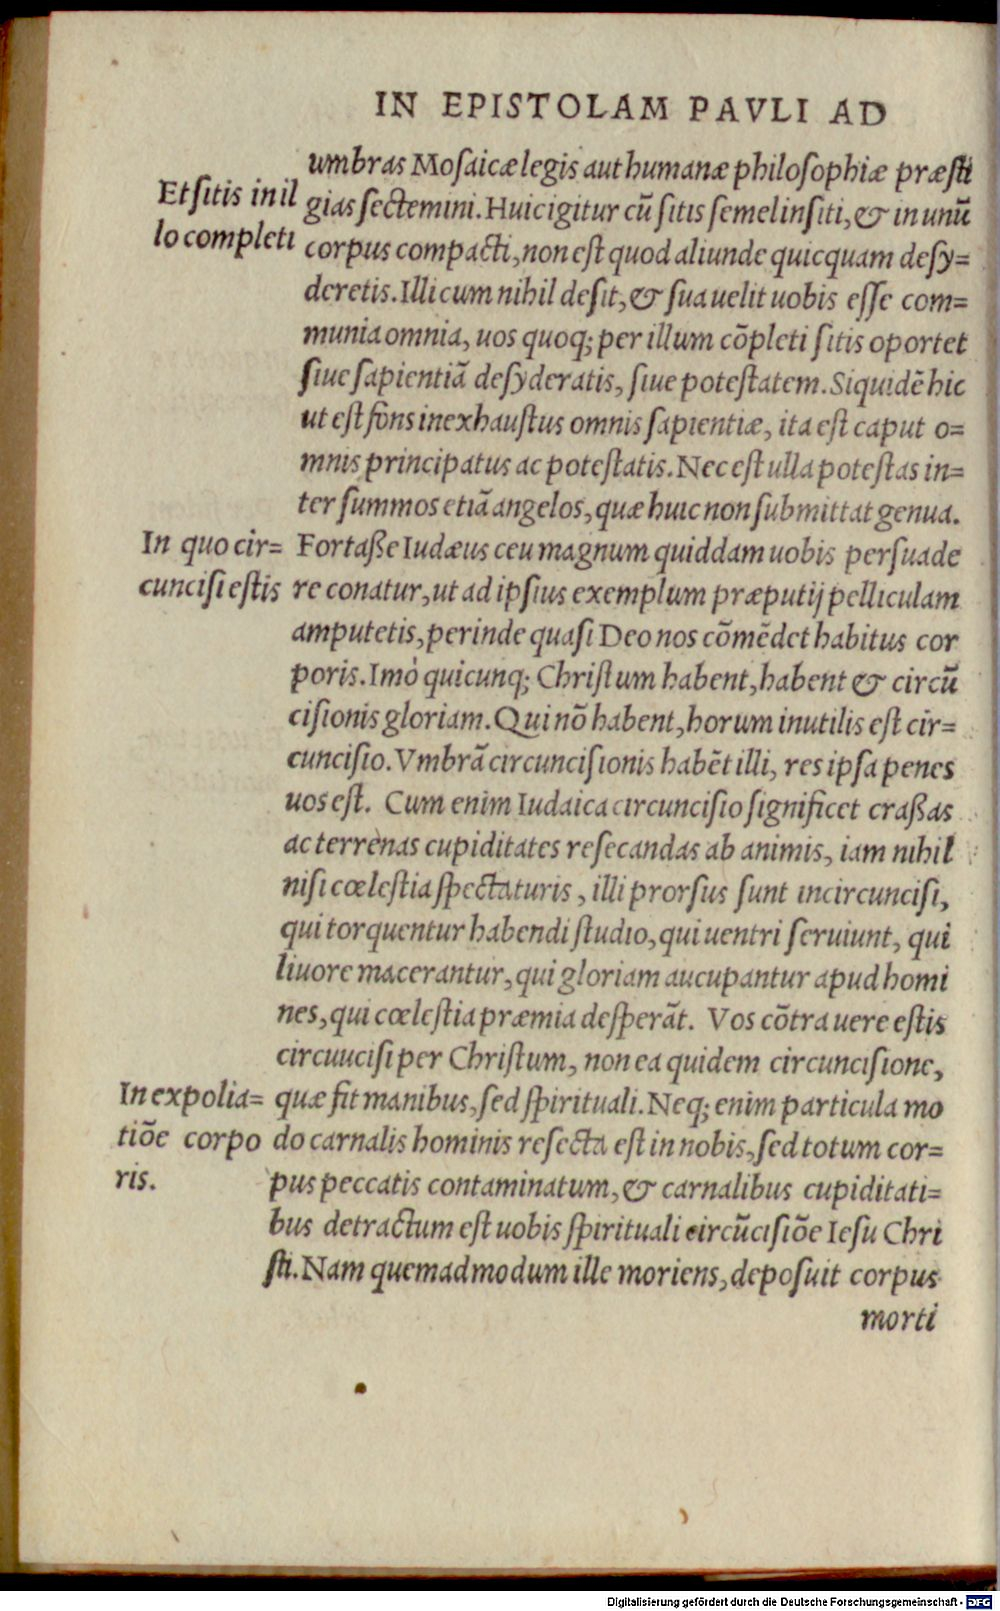 IN EPISTOLAM PAVLI AD
umbras Mosaicæ legis aut humanæ philosophiæ præsti
Et sitis in il
gias sectemini. Huic igitur cū sitis semel insiti, & in unū
lo completi
corpus compacti, non est quod aliunde quicquam desy=
deretis. Illi cum nihil desit, & sua uelit uobis esse com=
munia omnia, uos quoq; per illum cōpleti sitis oportet
siue sapientiā desyderatis, siue potestatem. Siquidē hic
ut est fons inexhaustus omnis sapientiæ, ita est caput o=
mnis principatus ac potestatis. Nec est ulla potestas in=
ter summos etiā angelos, quæ huic non submittat genua.
In quo cir=
Fortaße Iudæus ceu magnum quiddam uobis persuade
cuncisi estis
re conatur, ut ad ipsius exemplum præputij pelliculam
amputetis, perinde quasi Deo nos cōmēdet habitus cor
poris. Imò quicunq; Christum habent, habent & circū
cisionis gloriam. Qui nō habent, horum inutilis est cir=
cuncisio. Vmbrā circuncisionis habēt illi, res ipsa penes
uos est. Cum enim Iudaica circuncisio significet craßas
ac terrenas cupiditates resecandas ab animis, iam nihil
nisi cœlestia spectaturis, illi prorsus sunt incircuncisi,
qui torquentur habendi studio, qui uentri seruiunt, qui
liuore macerantur, qui gloriam aucupantur apud homi
nes, qui cœlestia præmia desperāt. Vos cōtra uere estis
circuucisi per Christum, non ea quidem circuncisione,
In expolia=
quæ fit manibus, sed spirituali. Neq; enim particula mo
tiōe corpo
do carnalis hominis resecta est in nobis, sed totum cor=
ris.
pus peccatis contaminatum, & carnalibus cupiditati=
bus detractum est uobis spirituali circūcisiōe Iesu Chri
sti. Nam quemadmodum ille moriens, deposuit corpus
morti
Digitalisierung gefördert durch die Deutsche Forschungsgemeinschaft - DFG